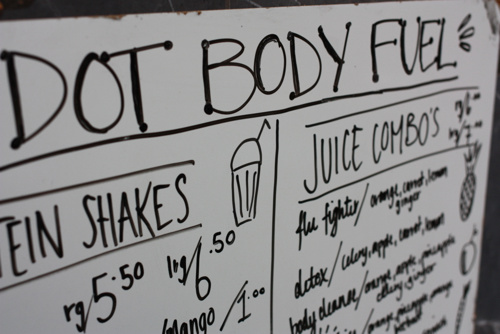 DOT BODY FUEL
TEIN SHAKES
rg 5.50 lrg 6.50
mango / 1.00
JUICE COMBO'S
rg/6
flu fighter / orange, carrot, lemon
ginger
detox / celery, apple, carrot, lemon
body cleanse / orange, apple, pineapple
celery, ginger